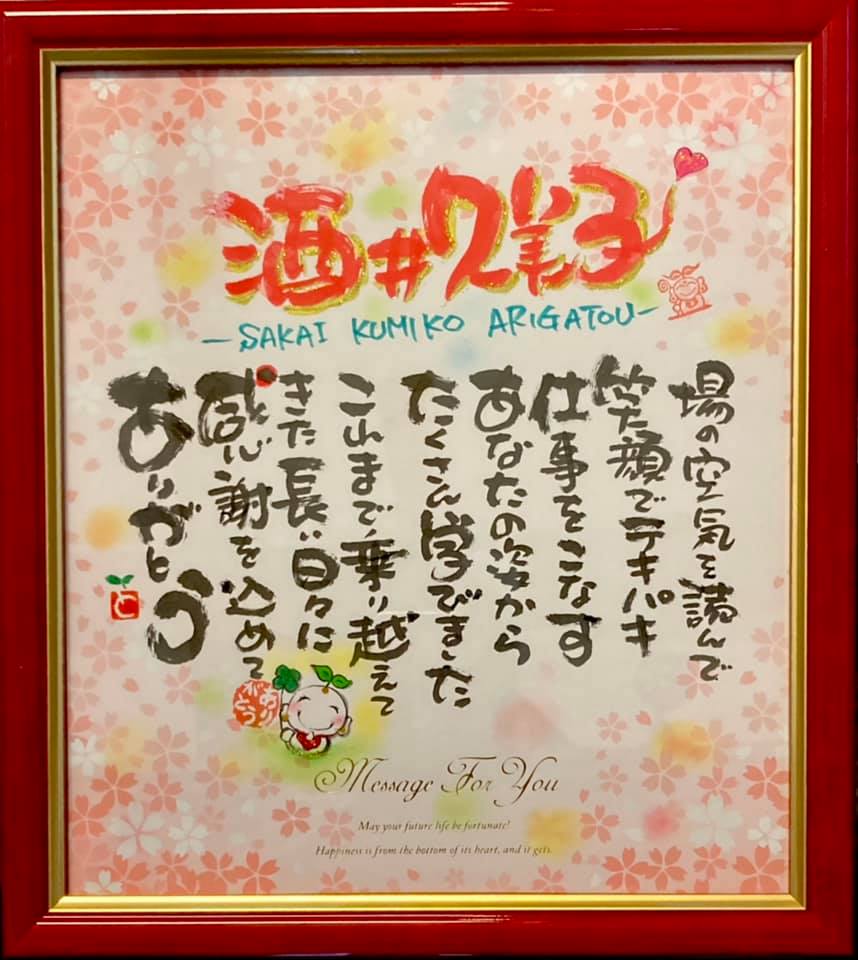 酒井久美子
－SAKAI KUMIKO ARIGATOU－
場の空気を読んで
笑顔でテキパキ
仕事をこなす
あなたの姿から
たくさん学びました
これまで乗り越えて
きた長い日々に
感謝を込めて
ありがとう
ありがとう
Message For You
May your future life be fortunate!
Happiness is from the bottom of its heart, and it gets.